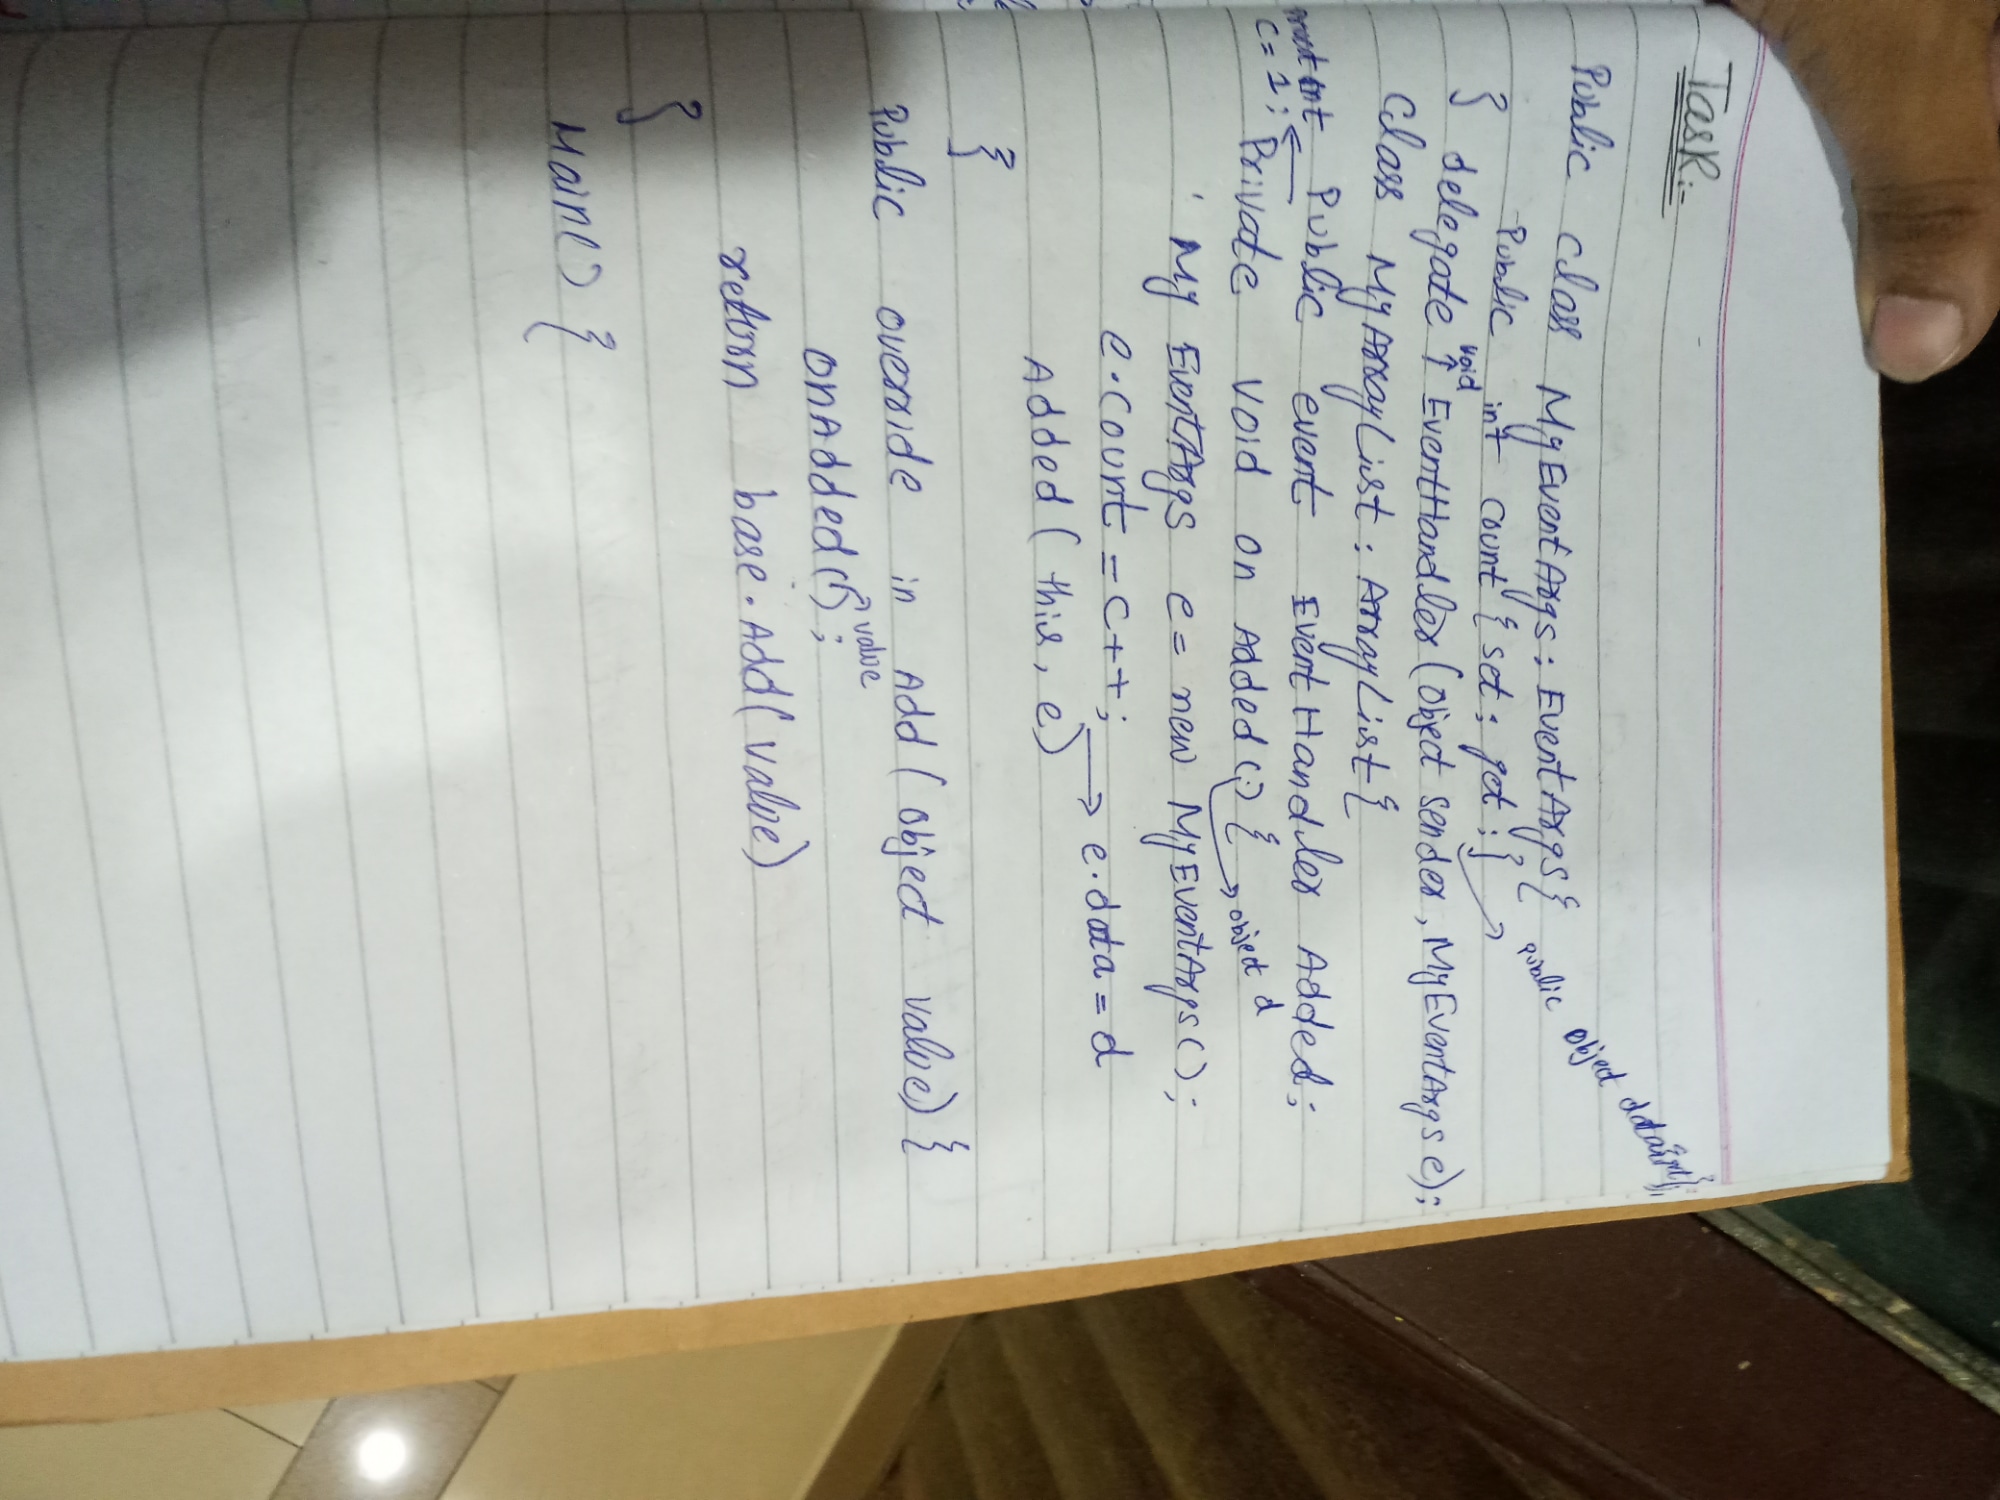 Task:-
Public class MyEventArgs : EventArgs {
Public int count { set ; get ; } → Public Object data
} delegate ↑ void EventHandler (Object sender, MyEventArgs e);
class MyArrayList : ArrayList {
Public event EventHandler Added;
int c = 1;
Private void on Added () { → object d
My EventArgs e = new MyEventArgs ();
e.count = c++;
→ e.data = d
Added ( this, e)
}
Public override in Add ( Object value) {
onAdded () ; value
return base.Add( value)
}
Main() {